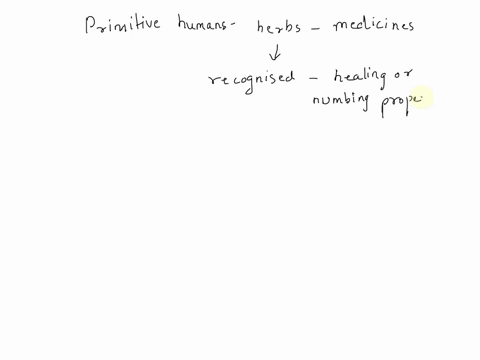 Primitive humans- herbs - medicines
↓
recognised - healing or
numbing prope